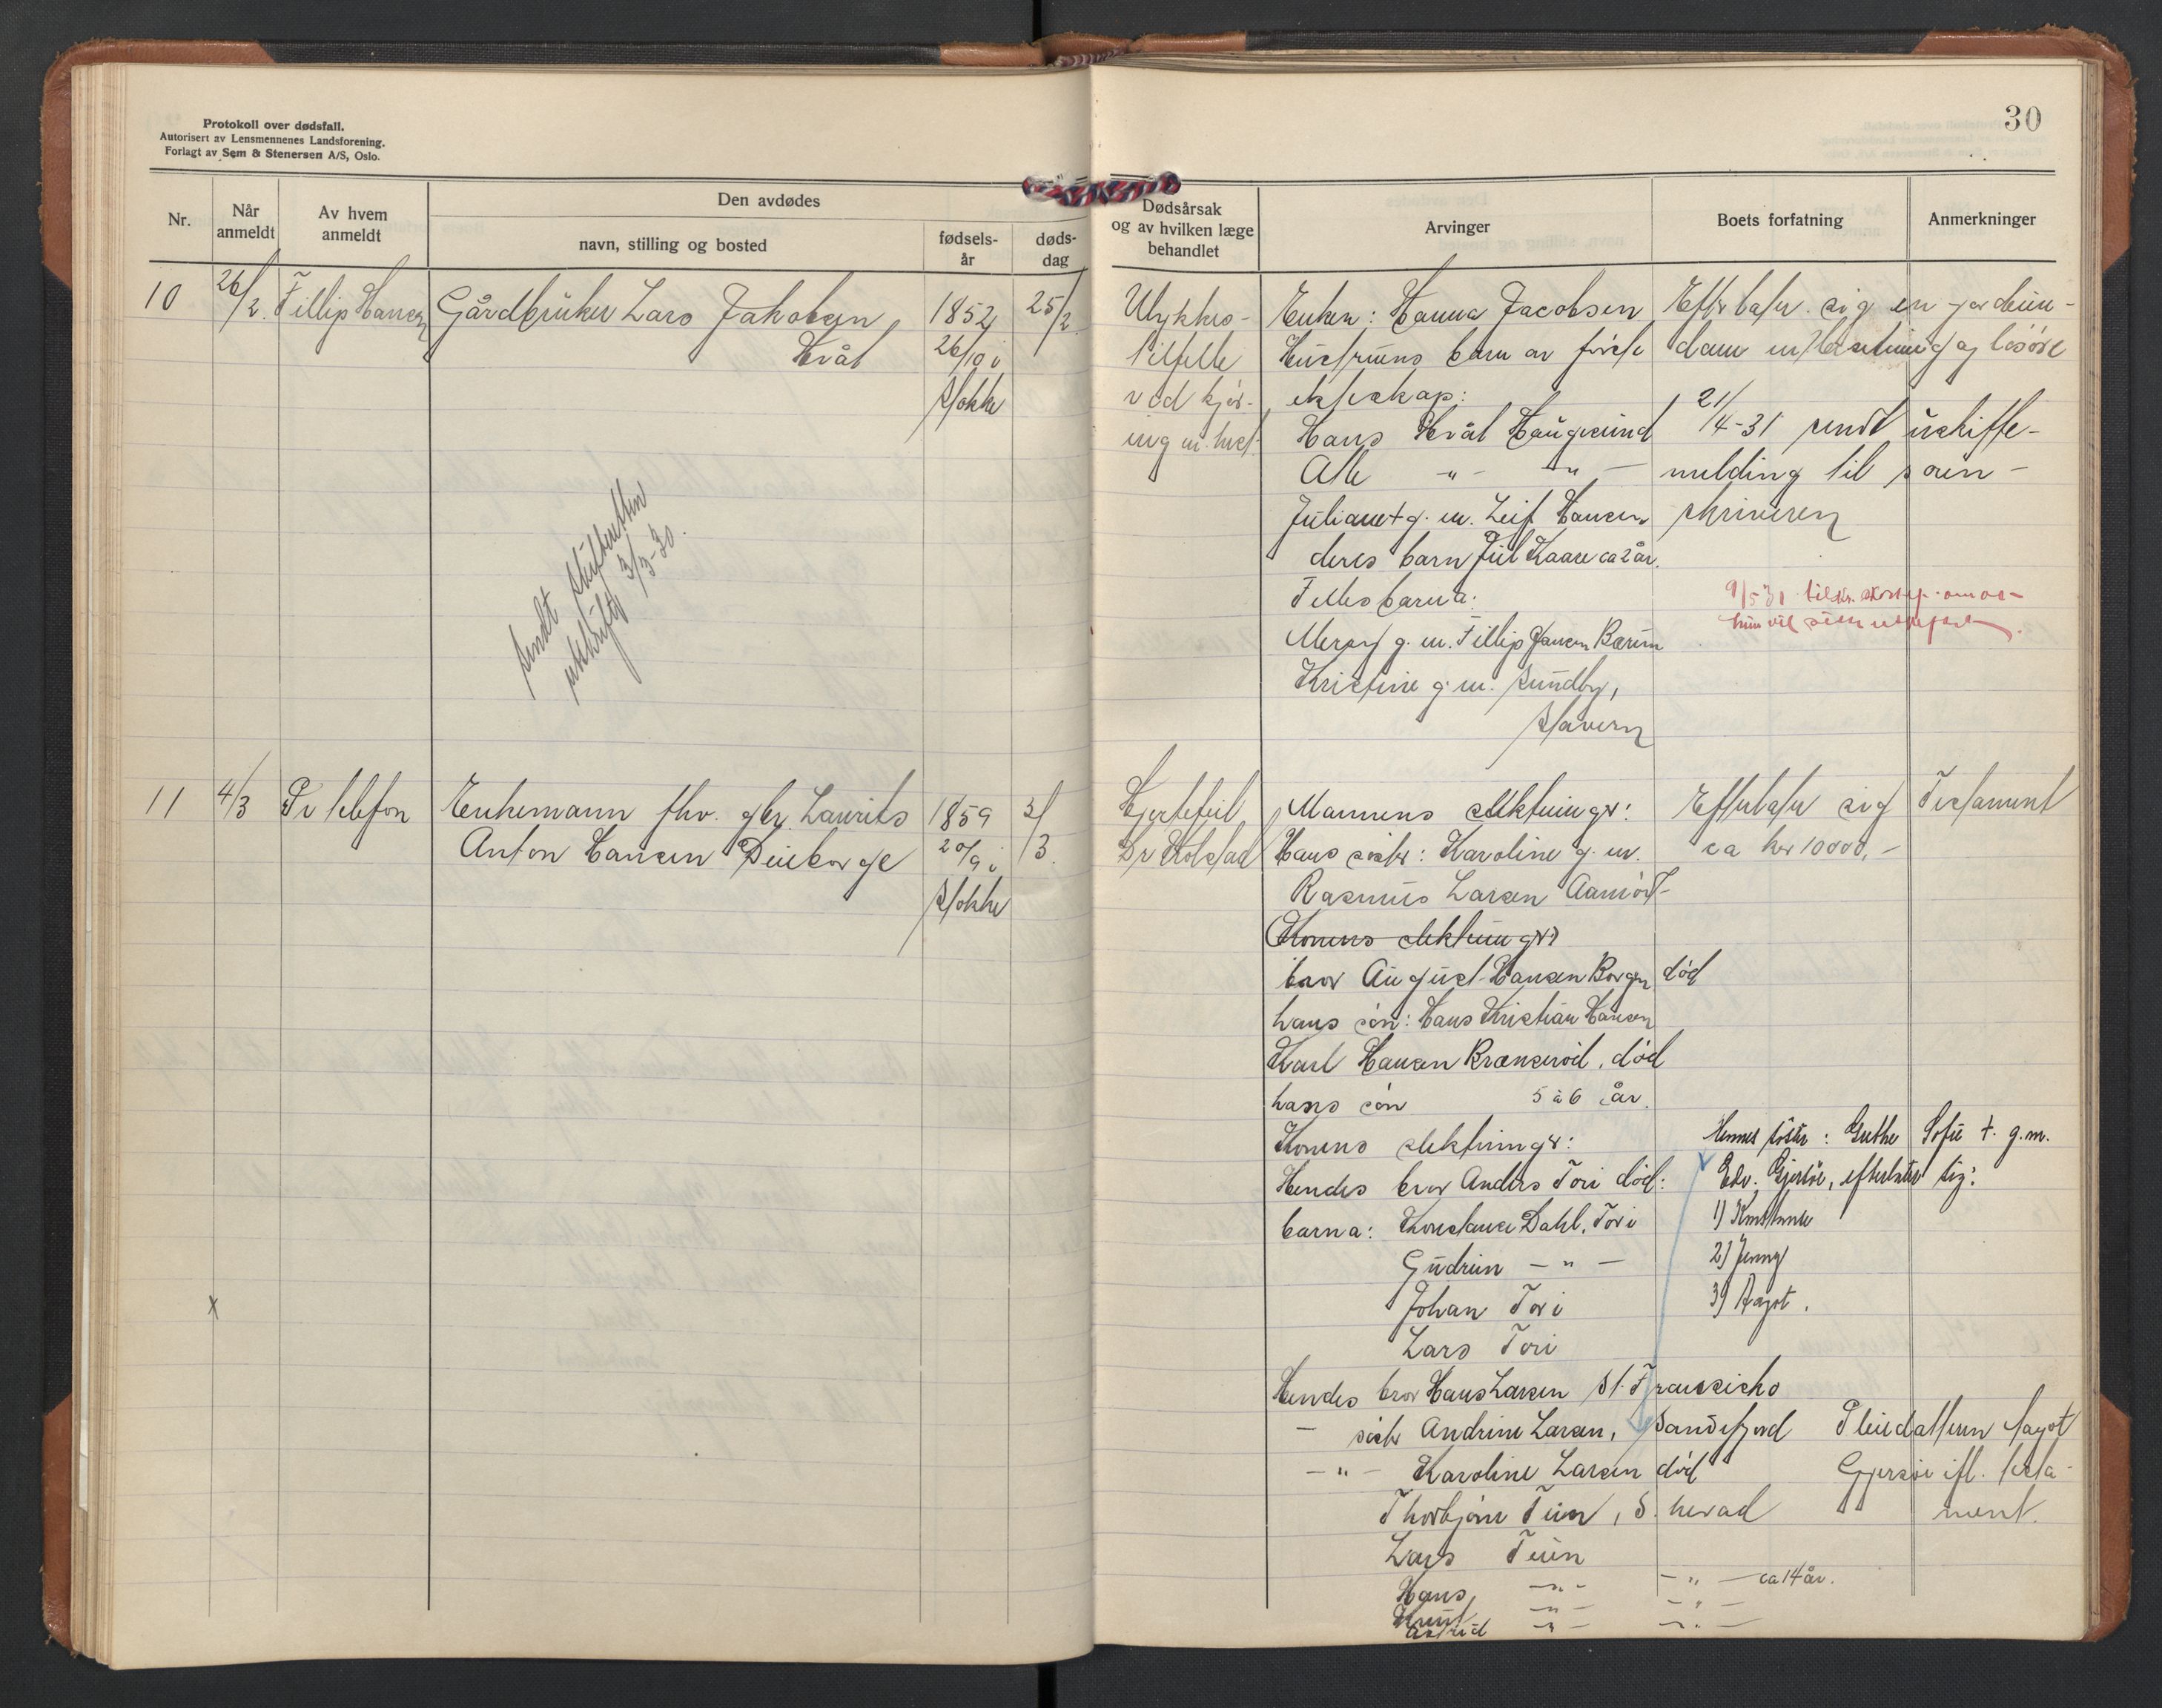 Protokoll over dødsfall.
Autorisert av Lensmennenes Landsforening.
Forlagt av Sem & Stenersen A/S, Oslo.
30
Nr.
Når anmeldt
Av hvem anmeldt
Den avdødes
navn, stilling og bosted
fødsels-år
døds-dag
Dødsårsak og av hvilken læge behandlet
Arvinger
Boets forfatning
Anmerkninger
10
26/2.
Fillip Hansen
Gårdbruker Lars Jakobsen,
Hvål
1852
26/10 i
Stokke
25/2.
Ulykkes-
tilfelle
ved kjør-
ing m. hest.
Enken: Hanna Jacobsen
Hustruens barn av første
ekteskap:
Hans Hvål Haugesund
Alle - " - - " -
Juliane + g. m. Leif Hansen
deres barn Jul Kaare ca 2 år.
Felles barna:
Mercy g. m. Fillip Hansen Bærum
Kristine g. m. Sundby,
Stavern
Efterlater sig en jordeien-
dom m/ besetning og løsøre
21/4-31 sendt uskifte-
melding til soren-
skriveren
9/5 31
sendt skifteretten
utskrift 3/3-30.
11
4/3
Pr telefon
Enkemann fhv. gbr. Laurits
Anton Hansen Dueborge
1859
20/9 i
Stokke
3/3.
Hjertefeil
Dr Kolstad
Mannens slektninger:
Hans søster: Karoline g. m.
Rasmus Larsen Aamot
(Konens slektninger:)
bror August Hansen Borgen død
hans søn: Hans Kristian Hansen
Karl Hansen Brænserød, død
hans søn 5 à 6 år.
Konens slektninger:
Hendes bror Anders Tori død:
barna: Konstance Dahl, Tori
Gudrun - " -
Johan Tori
Lars Tori
Hendes bror Hans Larsen St. Franscisko
- søster Andrine Larsen, Sandefjord
- " - Karoline Larsen død
Thorbjørn Tuen, S. herad
Lars Tuen
Hans - " - - " - ca 14 år.
Knut - " - - " -
Astrid - " - - " -
Efterlater sig
ca kr 10000,-
Testament
Hennes søster: Grethe Sofie +. g.m.
Edv. Gjersøe, efterlater sig:
1) Konstance
2) Jenny
3) Aagot.
Pleiedatteren Aagot
Gjersøe ifl. testa-
ment.
x